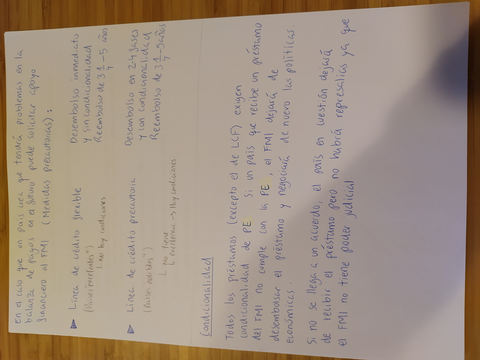 En el caso que un país crea que tendrá problemas en la
balanza de pagos en el futuro puede solicitar apoyo
financiero al FMI (Medidas precautorias):
▶ Línea de crédito flexible
("países excelentes")
↳ no hay condiciones
Desembolso inmediato
y sin condicionalidad
Reembolso de 3 1/4 - 5 años
▶ Línea de crédito precautoria
↳ no tiene
hay condiciones
Desembolso en 2-4 fases
y con condicionalidad
Reembolso de 3 1/4 - 5 años
Condicionalidad
Todos los préstamos (excepto el de LCF) exigen
condicionalidad de PE. Si un país que recibe un préstamo
del FMI no cumple con la PE, el FMI dejará de
desembolsar el préstamo y negociará de nuevo las políticas
económicas.
Si no se llega a un acuerdo, el país en cuestión dejará
de recibir el préstamo pero no habrá represalias ya que
el FMI no tiene poder judicial